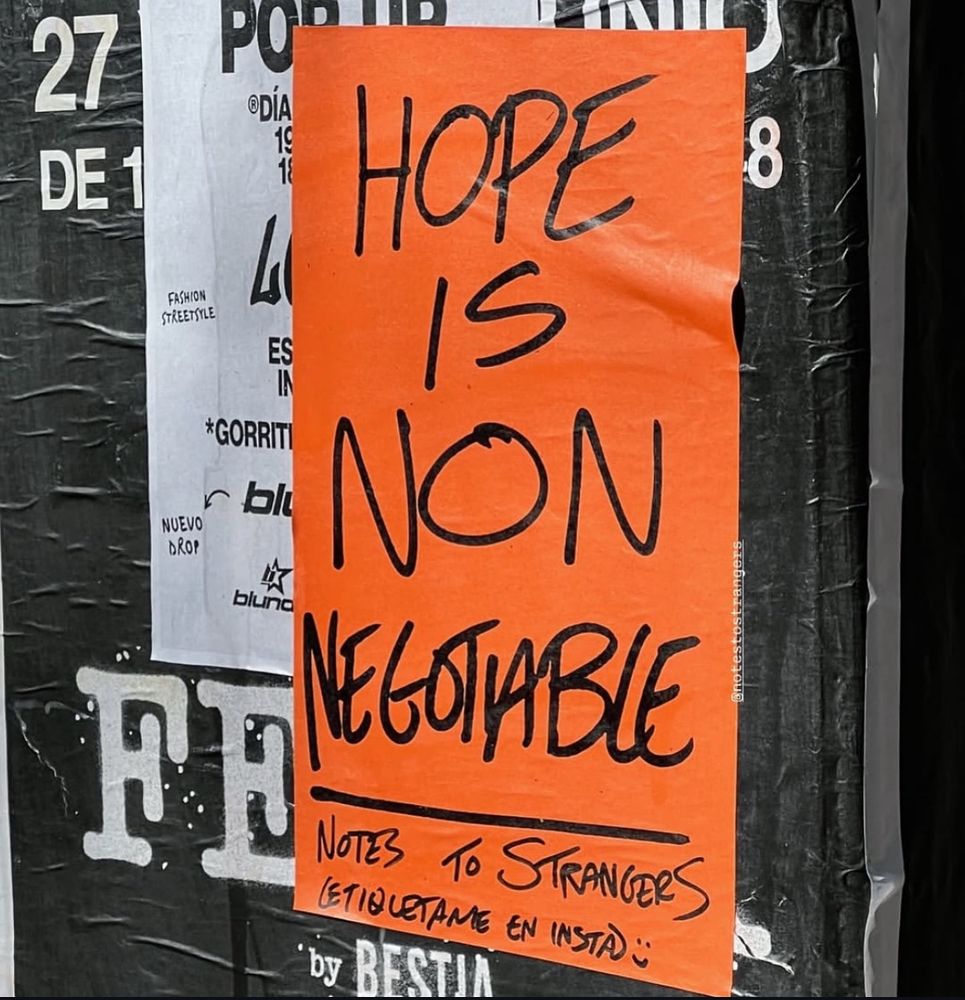 27
DE 1
POP UP
®DÍA
19
18
FASHION
STREETSYLE
ES
IN
*GORRITI
blu
NUEVO
DROP
bluno
8
HOPE
IS
NON
NEGOTIABLE
NOTES TO STRANGERS
(ETIQUETAME EN INSTA) :)
@notestostrangers
FE
by BESTIA